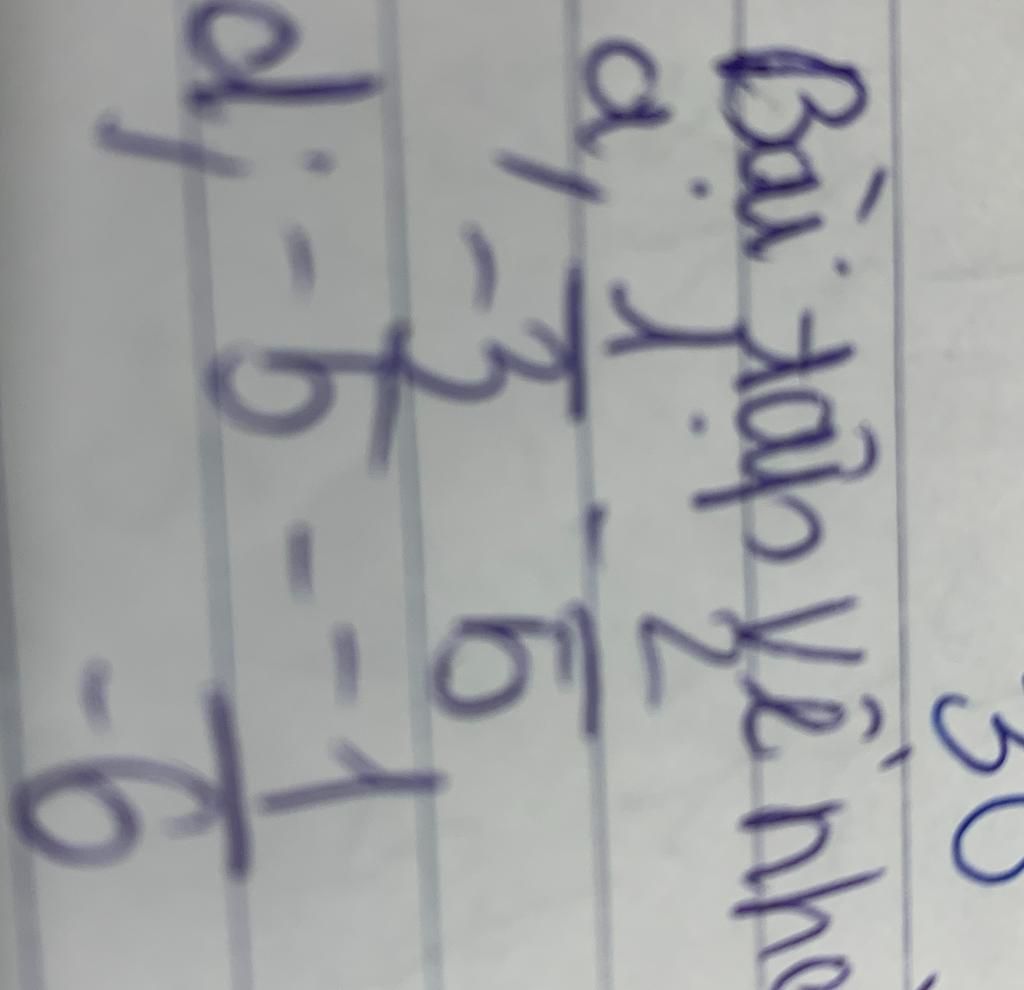 30
Bài tập về
a, 1/-3 - 2/5
d, -5 - -1/-6